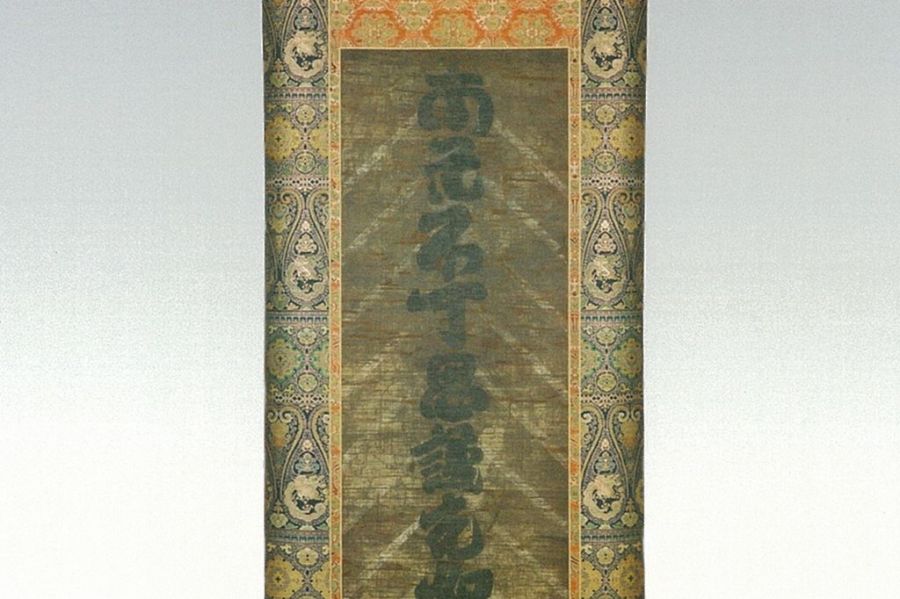 南无不可思議光如